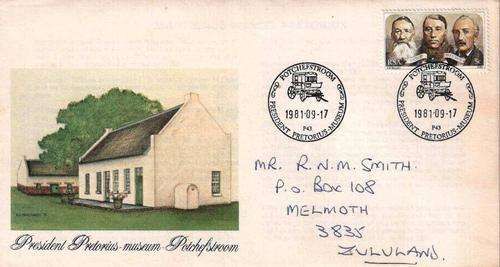 POTCHEFSTROOM
1981-09-17
P43
PRESIDENT PRETORIUS-MUSEUM
POTCHEFSTROOM
1981-09-17
P43
PRESIDENT PRETORIUS-MUSEUM
MR. R.N.M. SMITH.
P.O. BOX 108
MELMOTH
3835
ZULULAND.
President Pretorius-museum-Potchefstroom